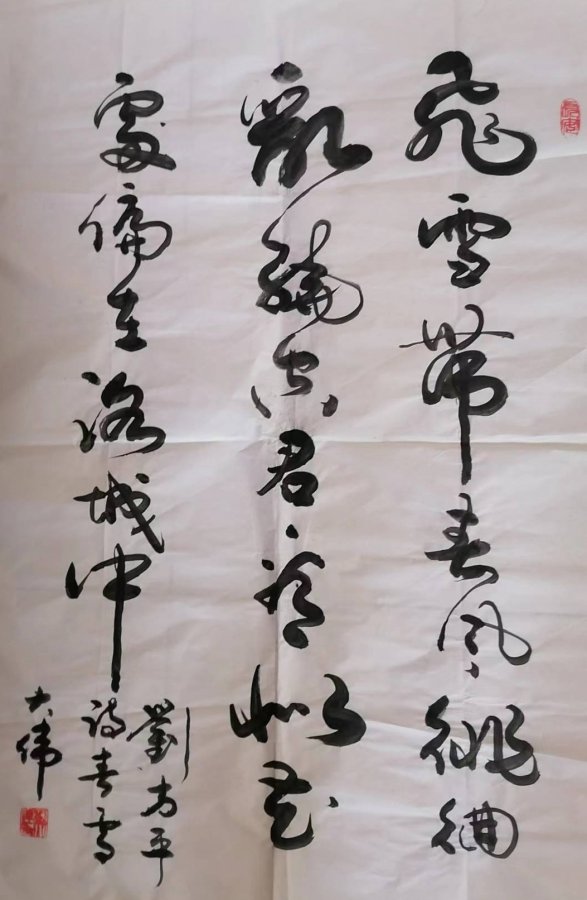 飛雪帶春風徘徊
亂繞空君看似花
處偏在洛城中
劉方平
詩春雪
大偉